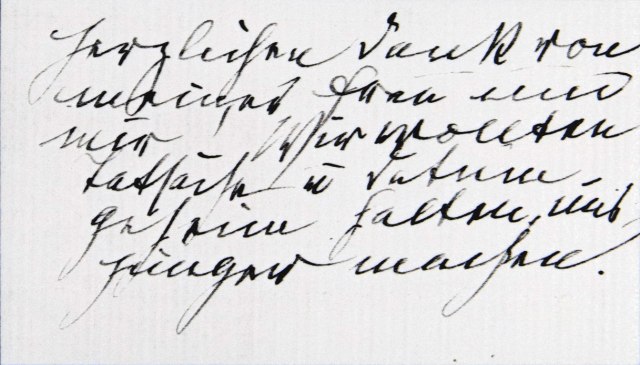 Herzlichen Dank von
meiner Frau und
mir! Wir wollten
Tatsache u Datum
geheim halten, uns
jünger machen.